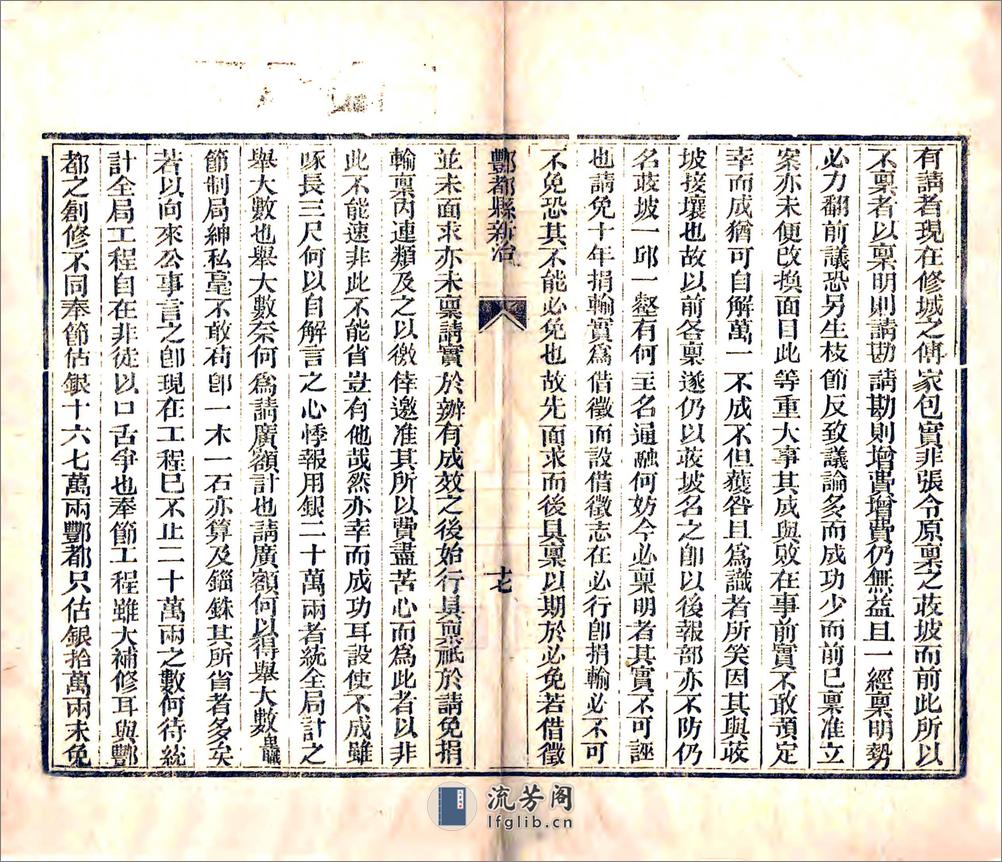 有請者現在修城之傅家包實非張令原稟之菝坡而前此所以
不稟者以稟明則請勘請勘則增費增費仍無益且一經稟明勢
必力翻前議恐另生枝節反致議論多而成功少而前已稟准立
案亦未便改換面目此等重大事其成與敗在事前實不敢預定
幸而成猶可自解萬一不成不但獲咎且為識者所笑因其與菝
坡接壤也故以前各稟遂仍以菝坡名之卽以後報部亦不防仍
名菝坡一邱一壑有何主名通融何妨今必稟明者其實不可誣
也請免十年捐輸實為借徵而設借徵志在必行卽捐輸必不可
不免恐其不能必免也故先面求而後具稟以期於必免若借徵
酆都縣新治
十七
並未面求亦未稟請實於辦有成效之後始行具稟祇於請免捐
輸稟內連類及之以徼倖邀准其所以費盡苦心而為此者以非
此不能速非此不能省豈有他哉然亦幸而成功耳設使不成雖
喙長三尺何以自解言之心悸報用銀二十萬兩者統全局計之
舉大數也舉大數奈何為請廣額計也請廣額何以得舉大數
節制局紳私毫不敢苟卽一木一石亦算及錙銖其所省者多矣
若以向來公事言之卽現在工程已不止二十萬兩之數何待統
計全局工程自在非徒以口舌爭也奉節工程雖大補修耳與酆
都之創修不同奉節估銀十六七萬兩酆都只估銀拾萬兩未免
流芳阁
lfglib.cn